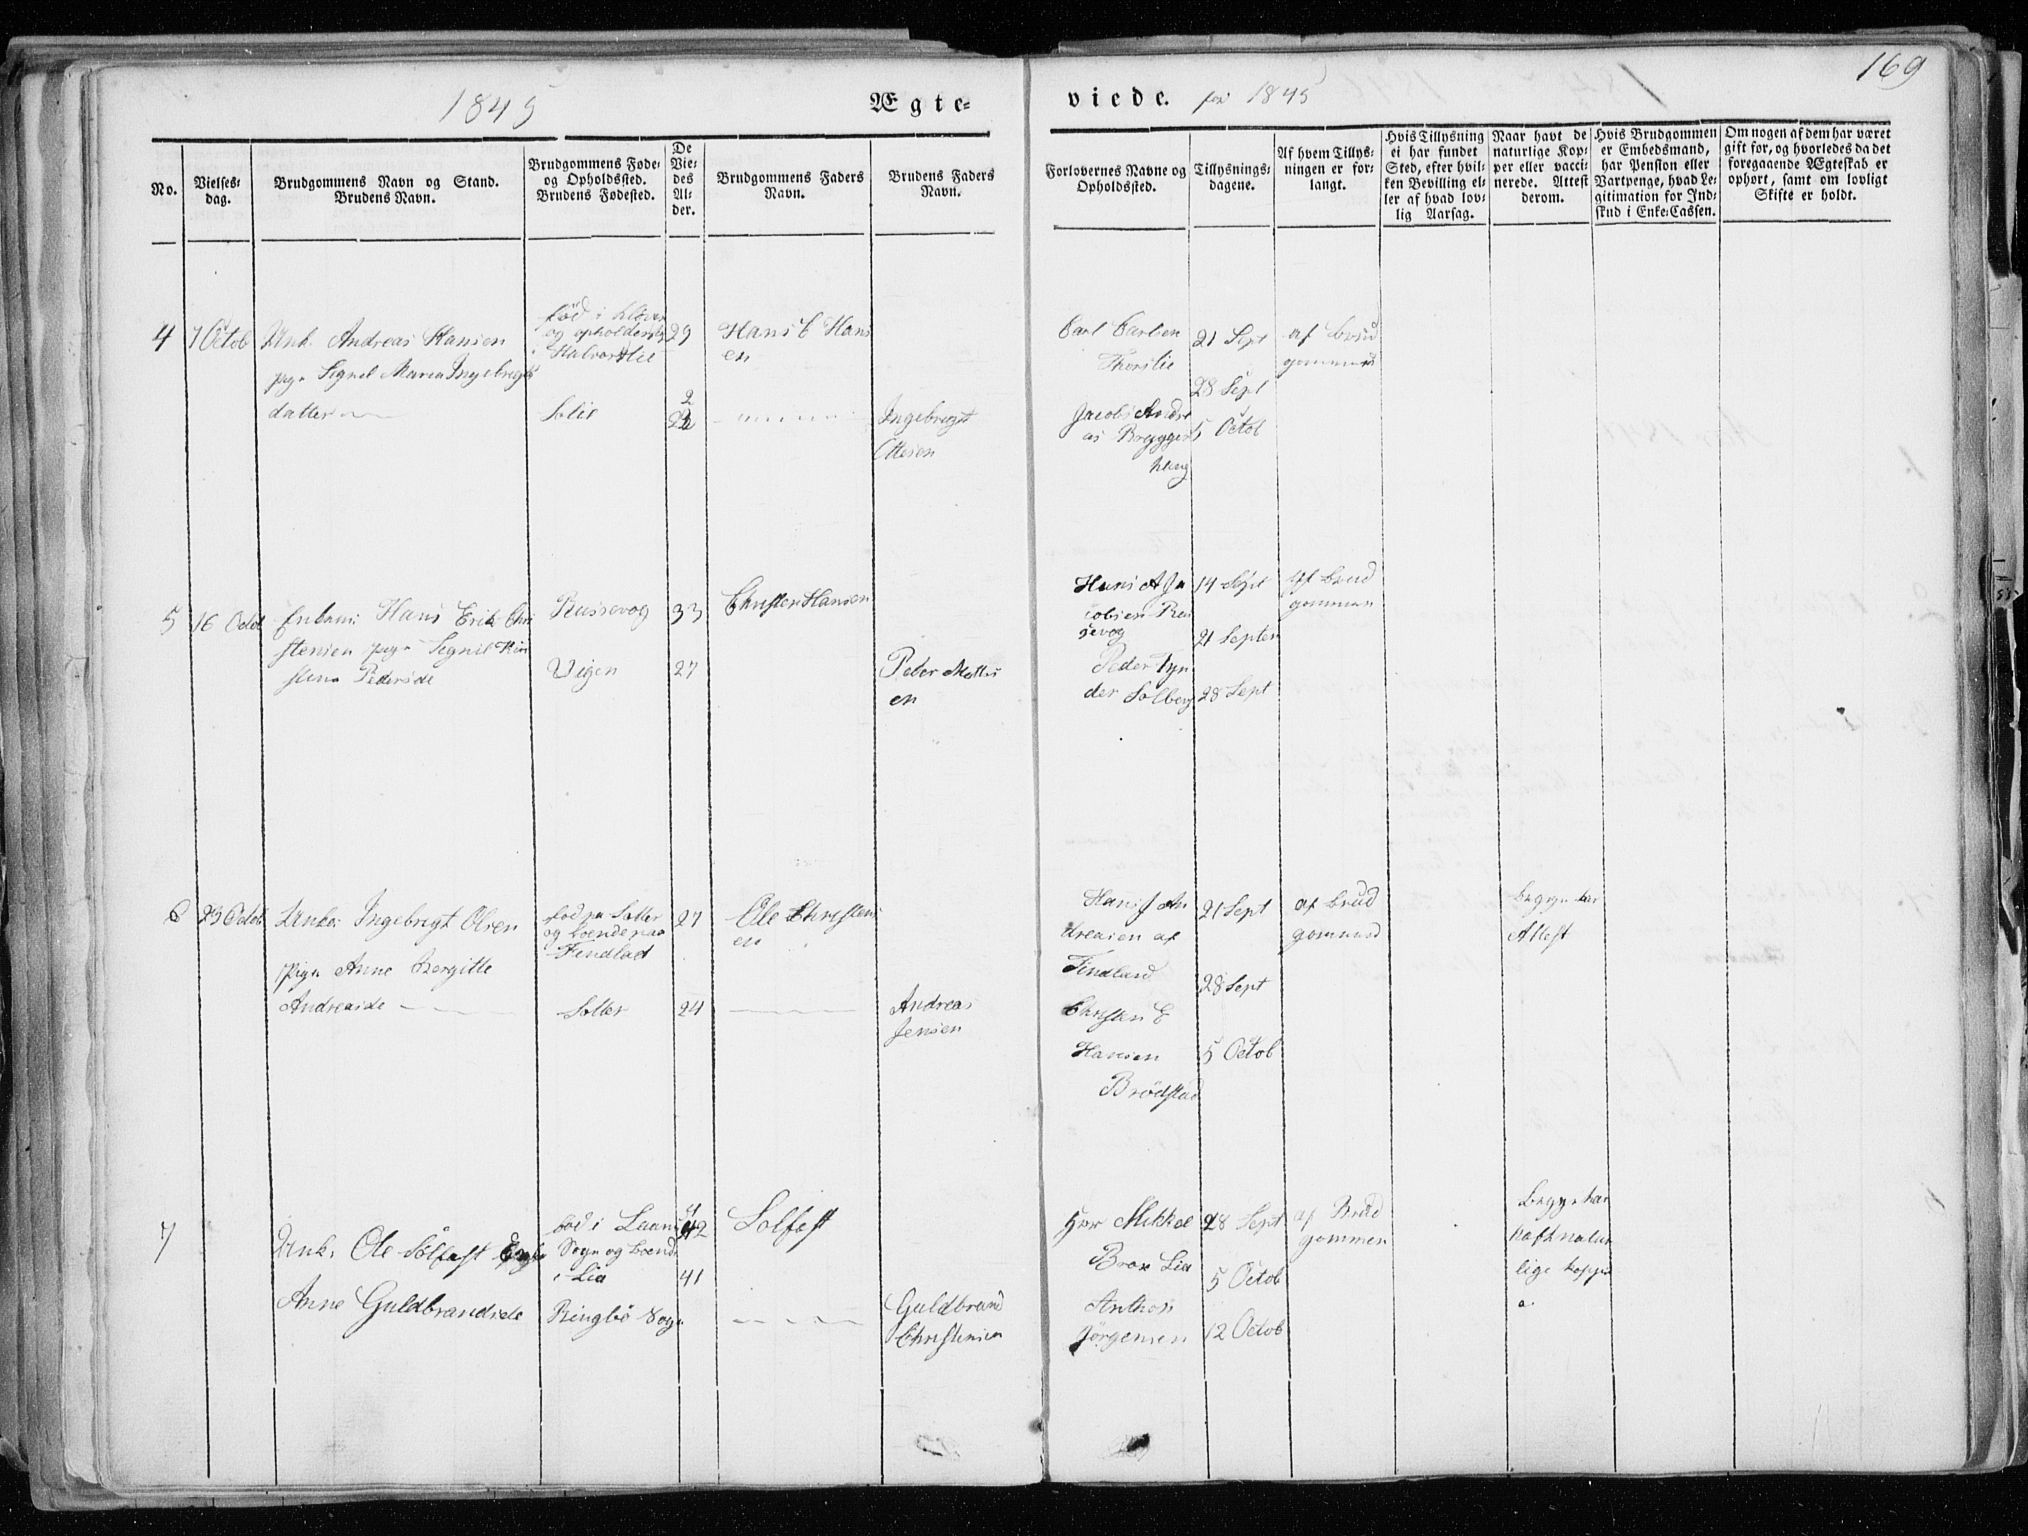 169
1845
Ægte-
viede. for 1845
No.
Vielses-
dag.
Brudgommens Navn og Stand.
Brudens Navn.
Brudgommens Føde-
og Opholdssted.
Brudens Fødested.
De
Vie-
des
Al-
der.
Brudgommens Faders
Navn.
Brudens Faders
Navn.
Forlovernes Navne og
Opholdssted.
Tillysnings-
dagene.
Af hvem Tillys-
ningen er for-
langt.
Hvis Tillysning
ei har fundet
Sted, efter hvil-
ken Bevilling el-
ler af hvad lov-
lig Aarsag.
Naar havt de
naturlige Kop-
per eller vacci-
nerede. Attest
derom.
Hvis Brudgommen
er Embedsmand,
har Pension eller
Vartpenge, hvad Le-
gitimation for Ind-
skud i Enke-Cassen.
Om nogen af dem har været
gift før, og hvorledes da det
foregaaende Ægteskab er
ophørt, samt om lovligt
Skifte er holdt.
4
7 Octob
Unk. Andreas Hansen
pige Signel Maren Ingebregts
datter
fød i
og opholdende
i Halvorslie
Solie
29
22
Hans E Hans
en
Ingebregt
Ottesen
Carl Carlsen
Thorslie
Jacob Andre
as Brygger
haug
21 Sept
28 Sept
5 Octob
af Brud
gommen
5
16 Octob
Enkem: Hans Erik Chri
stensen pige Signil Kir
stena Pedersde
Russevog
Vigen
33
27
Christen Hansen
Peder Mottis
en
Hans A Ja
cobsen Rus
sevog
Peder Tyn
der Solberg
14 Sept
21 Septem
28 Sept
Af Brud
gommen
6
23 Octob
Unke: Ingebrigt Olsen
Pige Anne Bergitte
Andreasde
fød paa Solter
og boende paa
Findlad
Solter
27
24
Ole Christens
en
Andreas
Jensen
Hans J An
dreasen af
Findland
Christen E
Hansen
Brödstad
21 Sept
28 Sept
5 Octob
af Brud
gommen
Begge har
Attest
7
Unk: Ole Solfest
Anne Guldbrandsde
fød i
Sogn og boende
i Lia
Ringbö Sogn
42
41
Solfest
Guldbrand
Christensen
Hr Mikkel
Brox Lia
Anthon
Jörgensen
28 Sept
5 Octob
12 Octob
af Brud
gommen
Begge har
haft natur
lige koppe